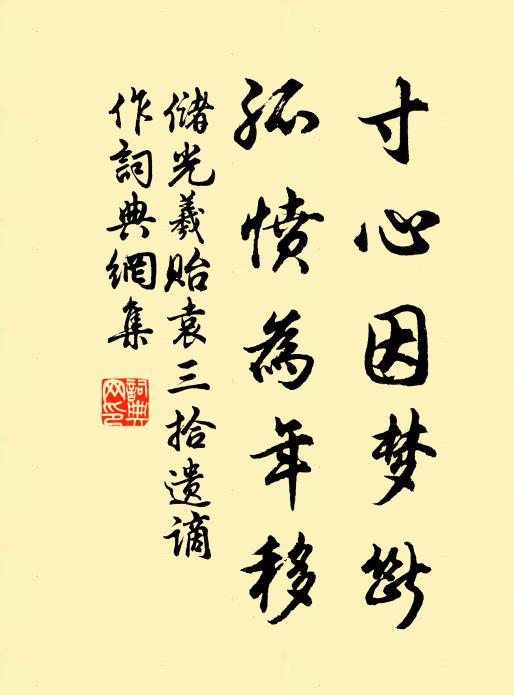 寸心因梦断
孤愤為年移
儲光羲贻袁三拾遺謫
作詞典網集
詞典网印